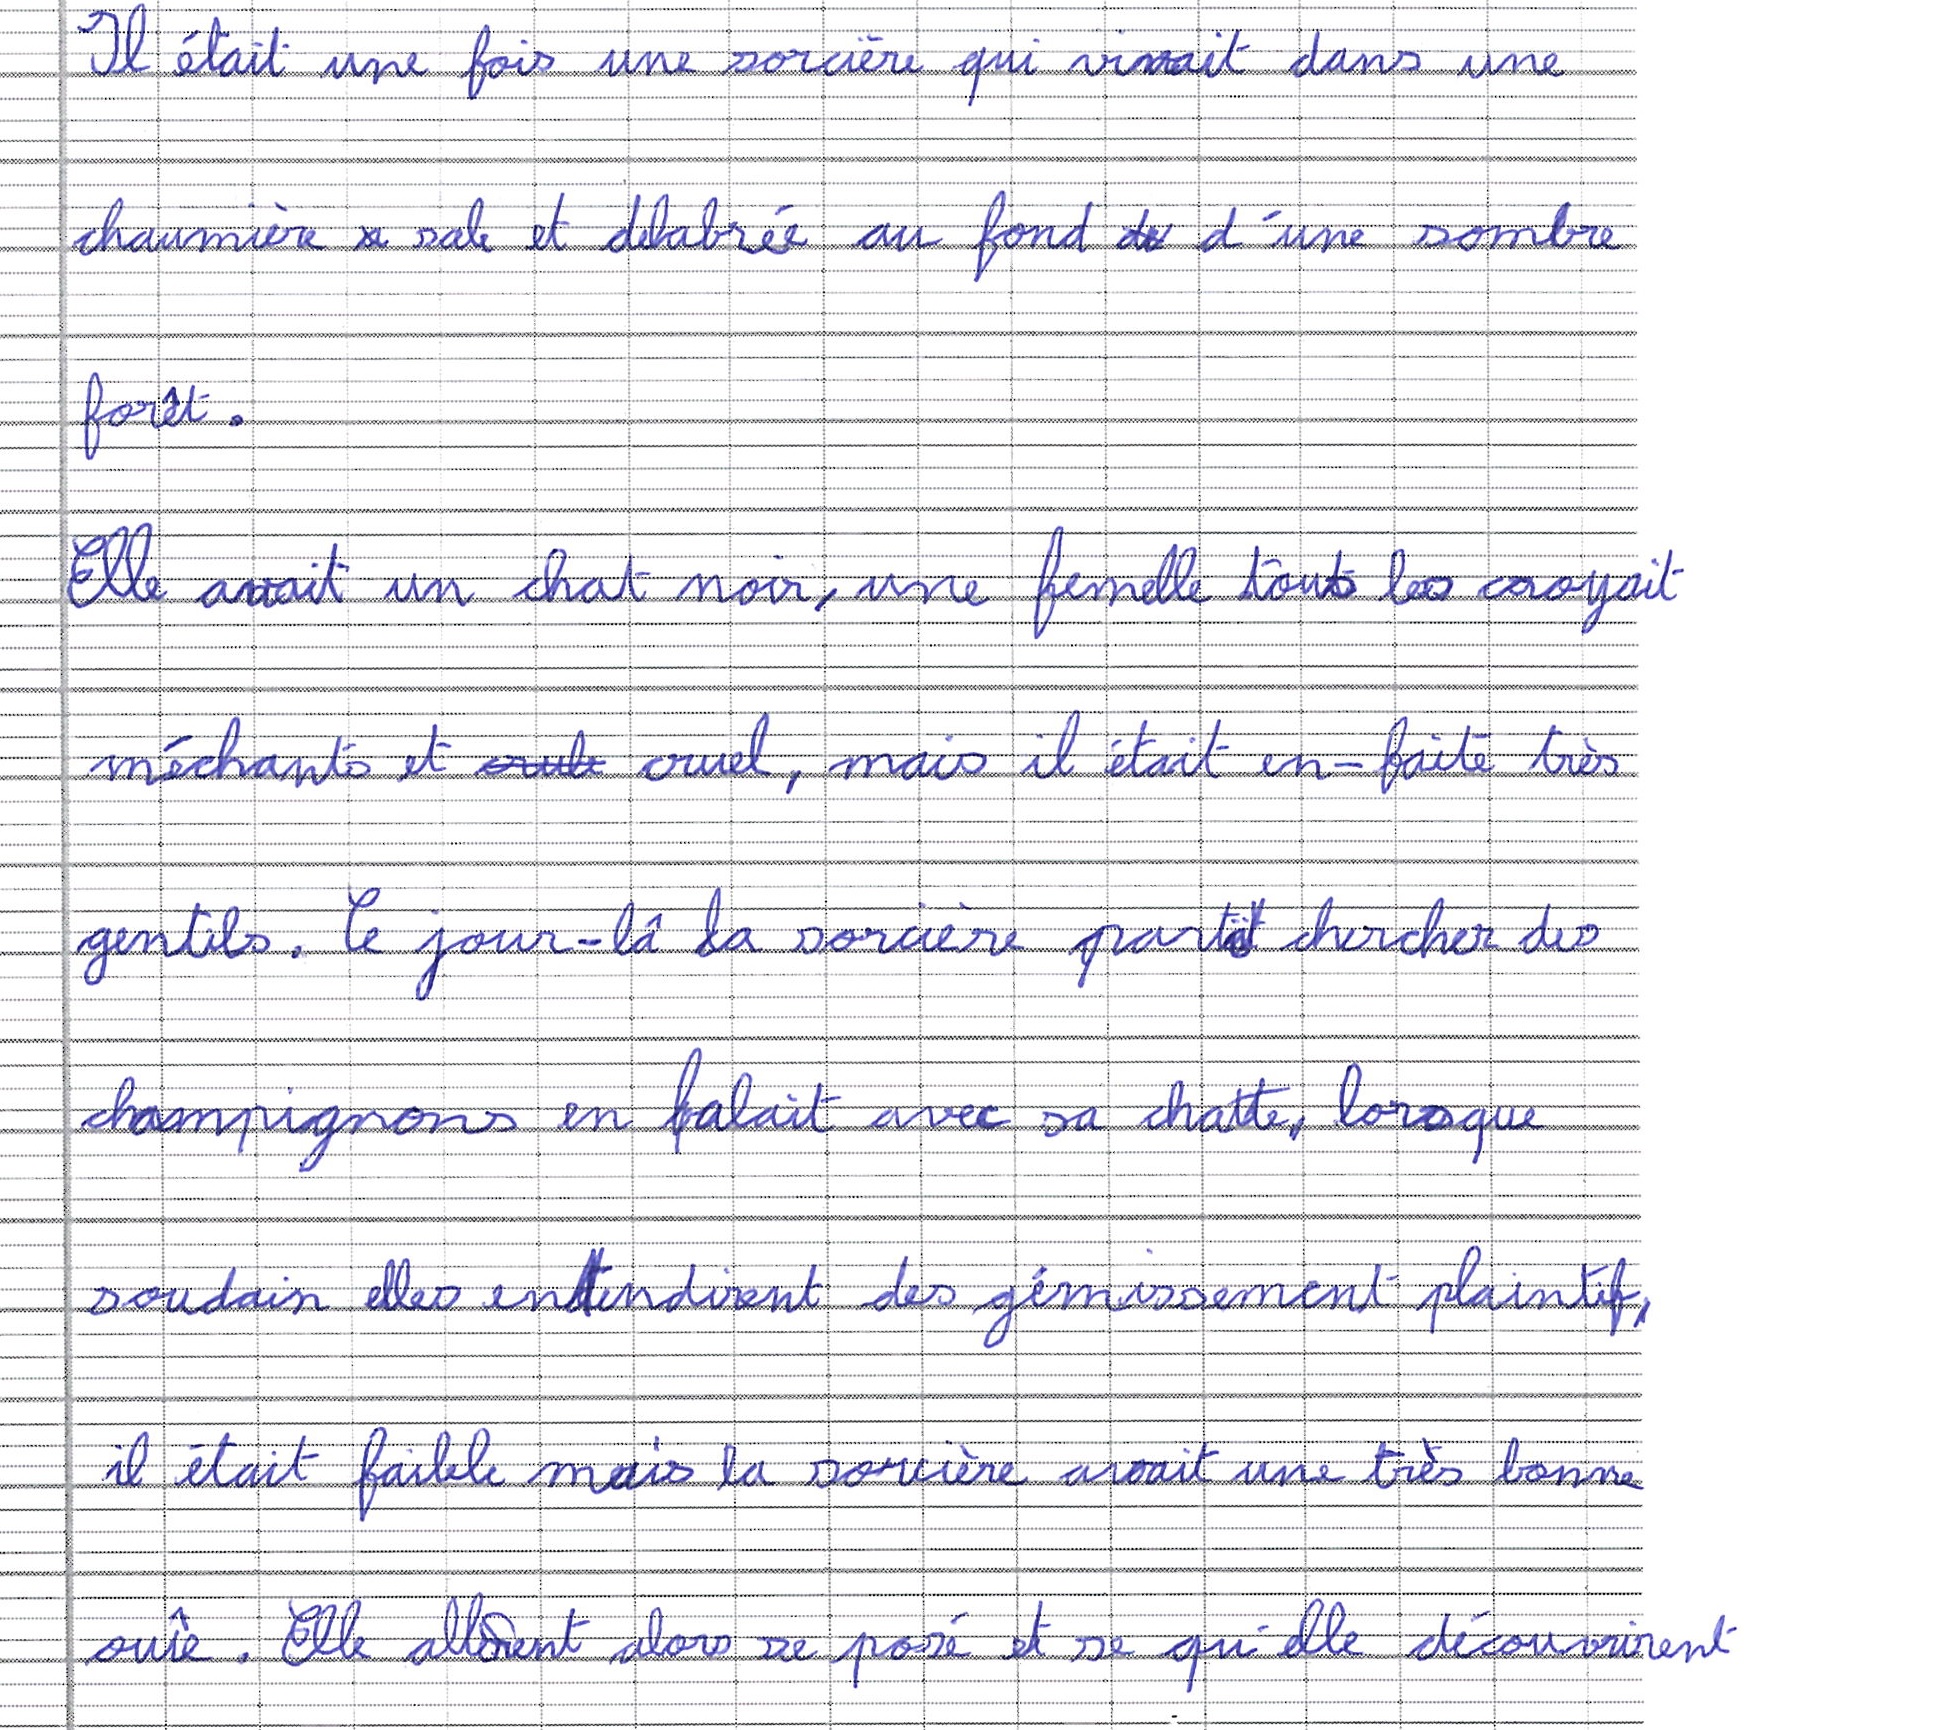 Il était une fois une sorcière qui vivait dans une
chaumière sale et délabrée au fond d'une sombre
forêt.
Elle avait un chat noir, une femelle touts les croyait
méchants et cruel, mais il était en-faite très
gentils. Ce jour-là la sorcière partit chercher des
champignons en balait avec sa chatte, lorsque
soudain elles entendirent des gémissement plaintif,
il était faible mais la sorcière avait une très bonne
ouïe. Elle allèrent alors se posé et se qu'elle découvrirent